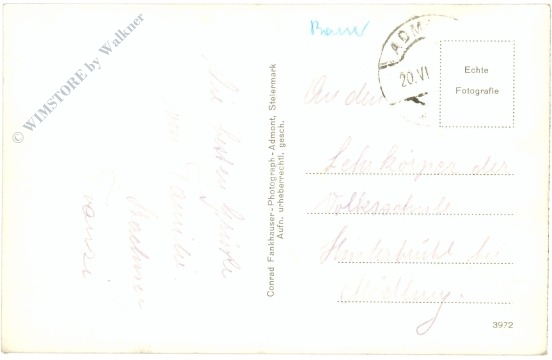 © WIMSTORE by Walkner
Die besten Grüße
von Familie
Conrad Fankhauser - Photograph - Admont, Steiermark
Aufn. urheberrechtl. gesch.
ADM
20.VI
Echte
Fotografie
An den
Lehrkörper der
Volksschule
Hinterbrühl bei
Mödling.
3972